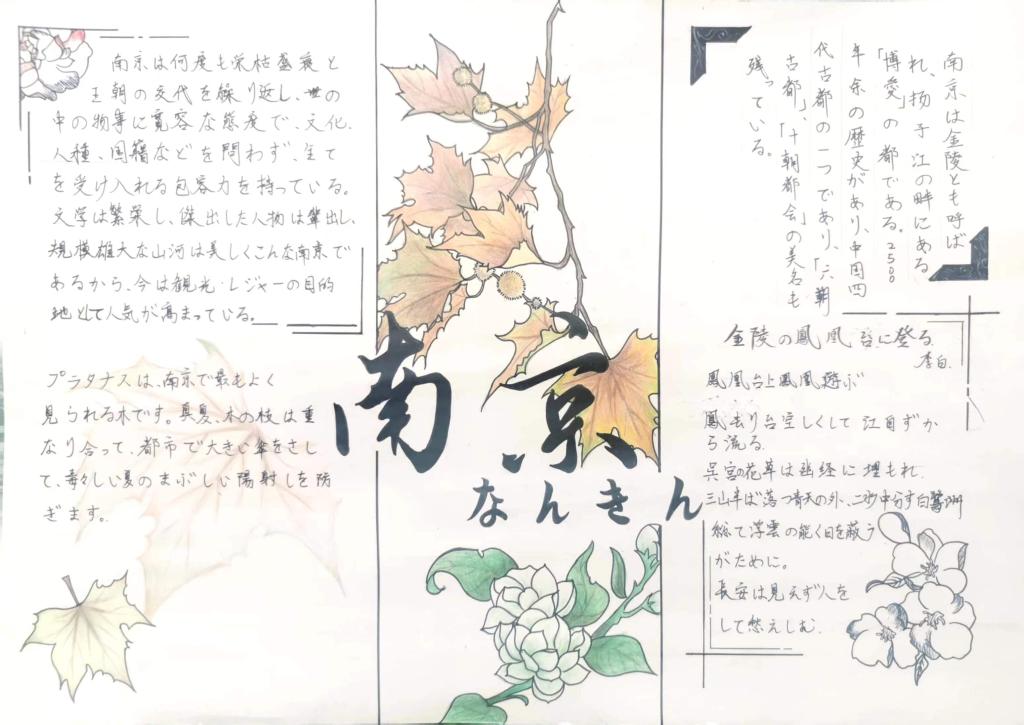 南京は何度も栄枯盛衰と
王朝の交代を繰り返し、世の
中の物事に寛容な態度で、文化、
人種、国籍などを問わず、全て
を受け入れる包容力を持っている。
文学は繁栄し、傑出した人物は輩出し、
規模雄大な山河は美しくこんな南京で
あるから、今は観光・レジャーの目的
地として人気が高まっている。
プラタナスは、南京で最もよく
見られる木です。真夏、木の枝は重
なり合って、都市で大きい傘をさし
て、毒々しい夏のまぶしい陽射しを防
ぎます。
南京
なんきん
南京は金陵とも呼ば
れ、扬子江の畔にある
「博愛」の都である。2500
年余の歴史があり、中国四
代古都の一つであり、「六朝
古都」、「十朝都会」の美名も
残っている。
金陵の鳳凰台に登る
李白.
鳳凰台上鳳凰遊ぶ
鳳去り台空しくして江自ずか
ら流る.
呉宮の花草は幽経に埋もれ.
三山半ば落つ青天の外、二水中分す白鷺洲
総て浮雲の能く日を蔽う
がために。
長安は見えず人を
して愁えしむ.